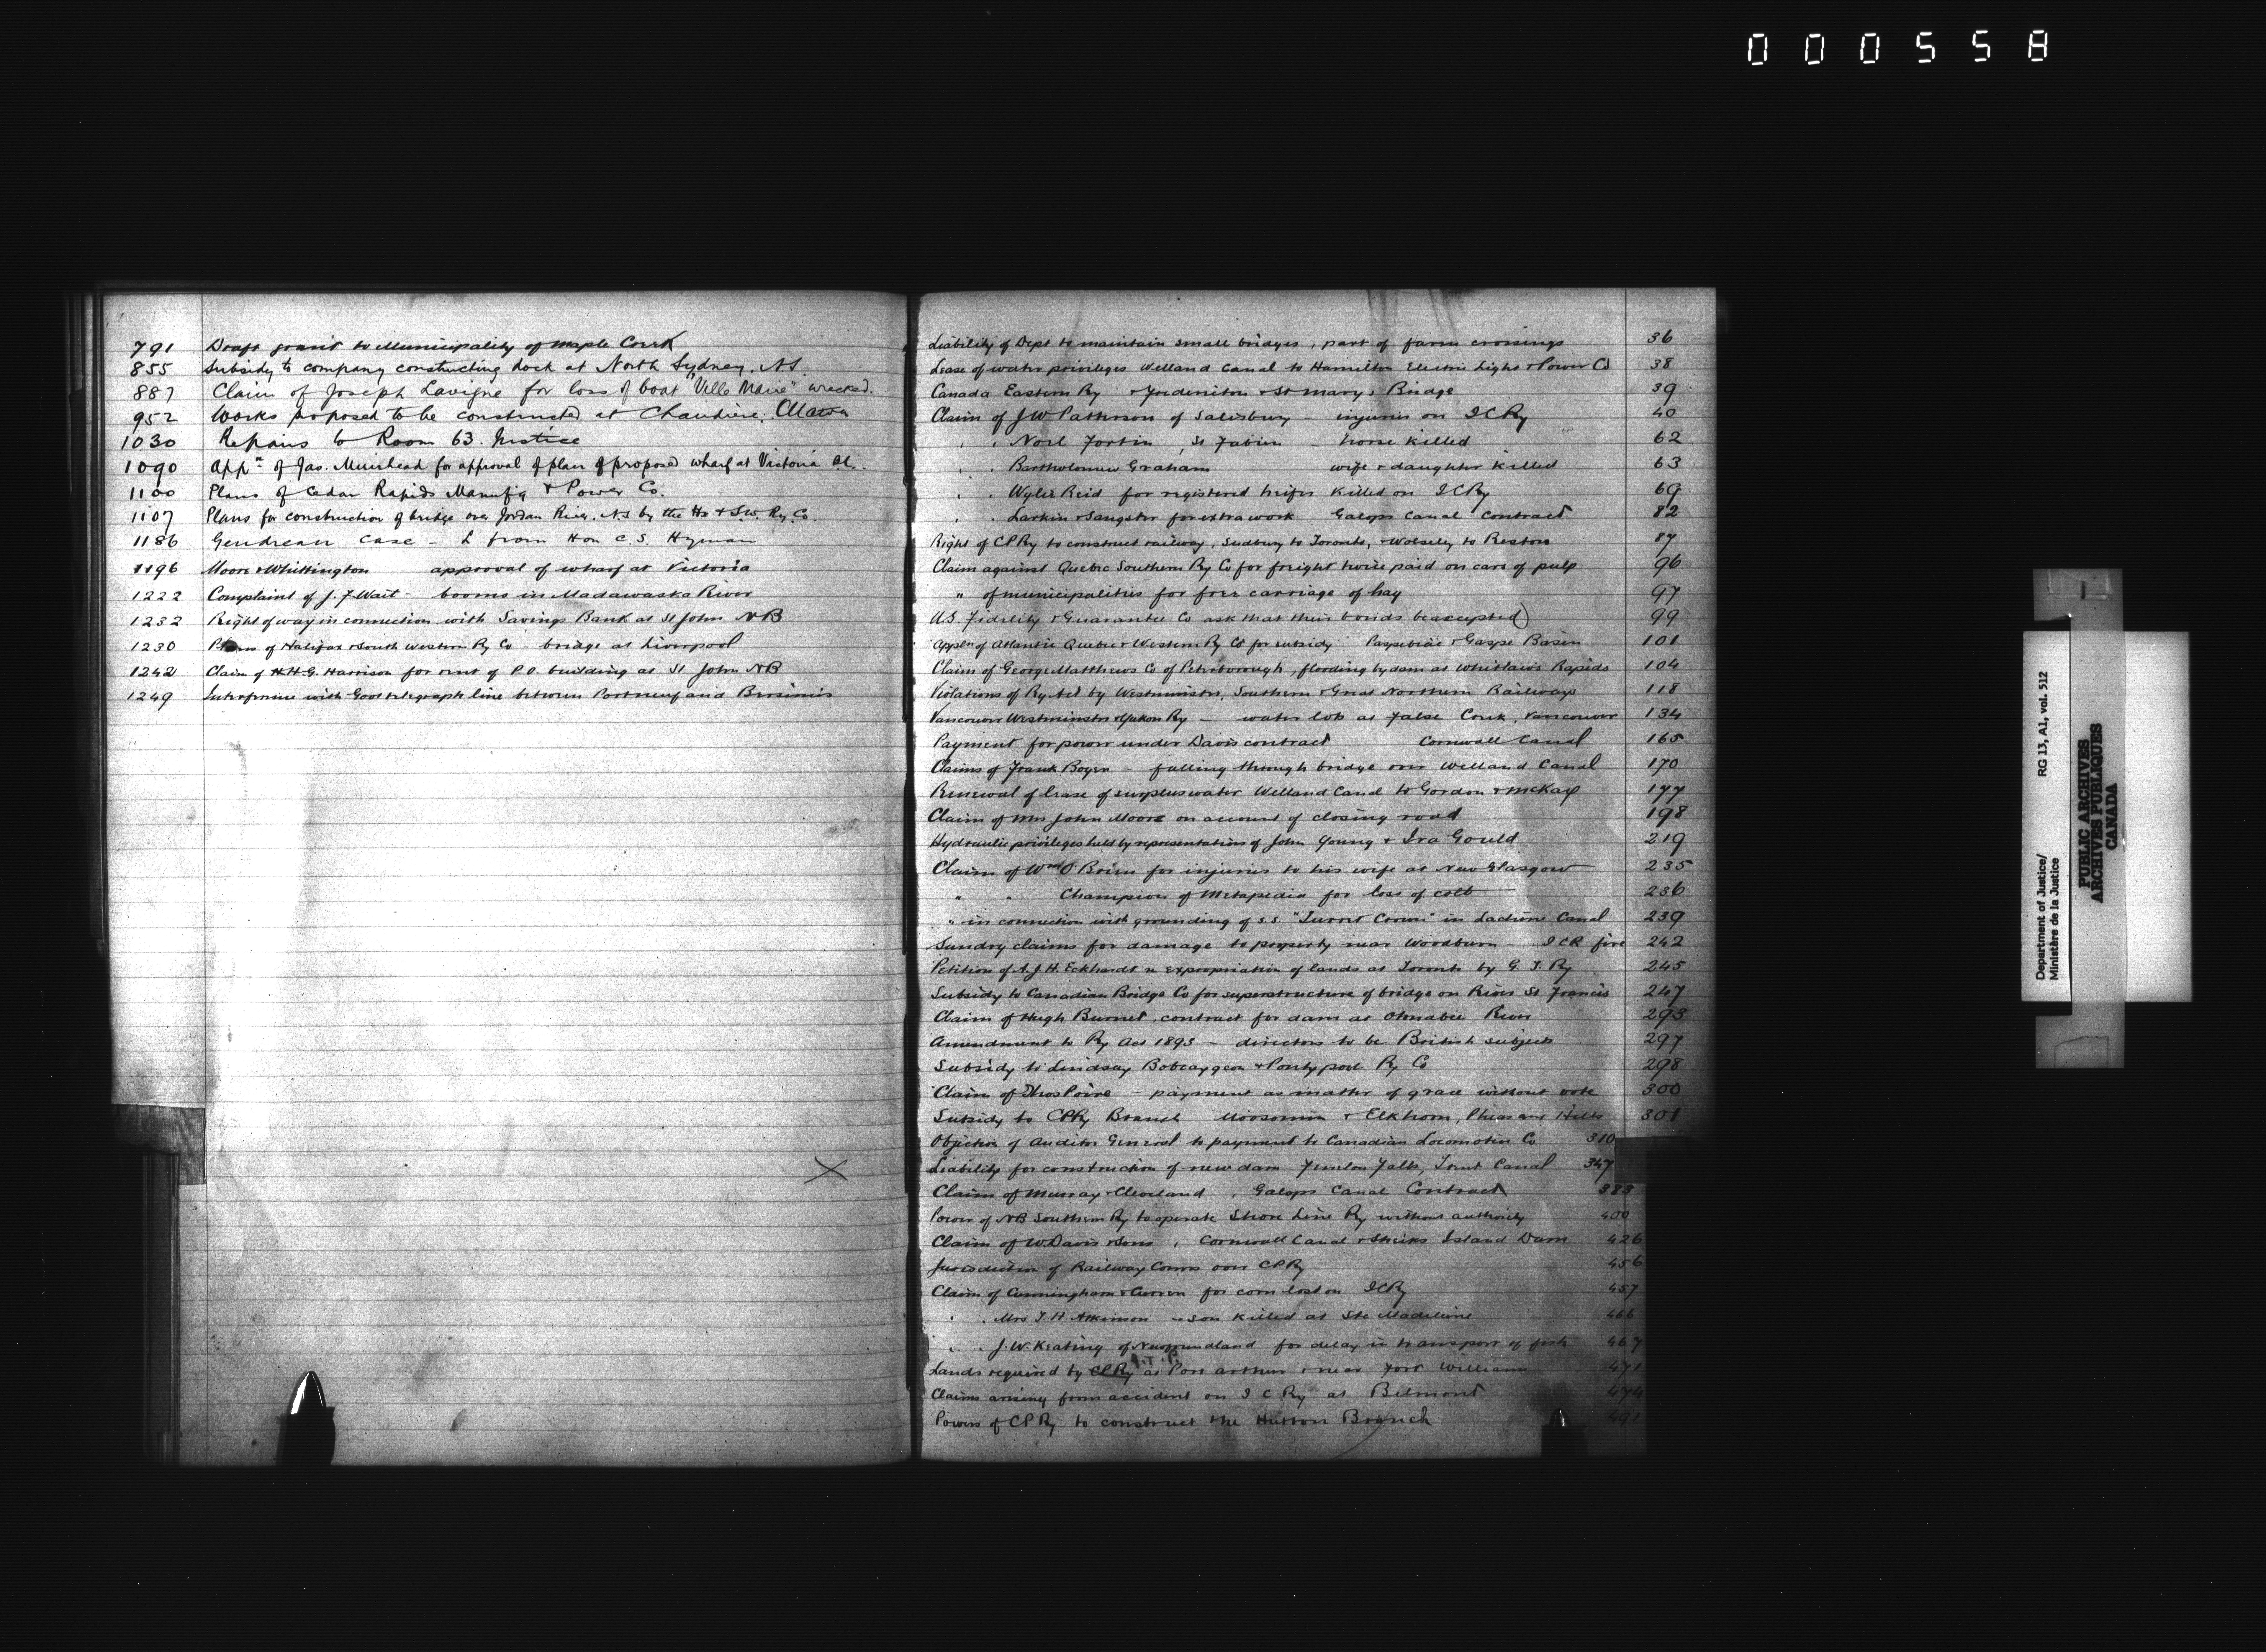 000558
791 Draft grant to Municipality of Maple Creek
855 Subsidy to company constructing dock at North Sydney, N.S.
887 Claim of Joseph Lavigne for loss of boat "Ville Marie" wrecked.
952 Works proposed to be constructed at Chaudiere. Ottawa
1030 Repairs to Room 63. Justice
1090 Appn of Jas. Muirhead for approval of plan of proposed wharf at Victoria BC.
1100 Plans of Cedar Rapids Manufg & Power Co.
1107 Plans for construction of bridge over Jordan River. N.S by the Hx & S.W. Ry. Co.
1186 Gendreau Case - L from Hon C. S. Hyman
1196 Moore & Whittington approval of wharf at Victoria
1222 Complaint of J. F. Wait - booms in Madawaska River
1232 Right of way in connection with Savings Bank at St John NB
1230 Plans of Halifax & South Western Ry Co - bridge at Liverpool
1242 Claim of H. G. Harrison for rent of P.O. building at St John NB
1249 Interference with Govt telegraph line between Portneuf and Bersimis
Liability of Dept to maintain small bridges, part of farm crossings 36
Lease of water privileges Welland Canal to Hamilton Electric Light & Power Co 38
Canada Eastern Ry & Fredericton & St Marys Bridge 39
Claim of J W Patterson of Salisbury - injuries on I C Ry 40
" " Noel Fortin, St Fabien - horse killed 62
" " Bartholomew Graham wife & daughter killed 63
" " Wylie Reid for registered heifer killed on I C Ry 69
" " Larkin & Sangster for extra work Galops Canal Contract 82
Right of CP Ry to construct railway, Sudbury to Toronto, & Wolseley to Reston 87
Claim against Quebec Southern Ry Co for freight twice paid on cars of pulp 96
" of municipalities for free carriage of hay 97
U.S. Fidelity & Guarantee Co ask that their bonds be accepted 99
Appln of Atlantic Quebec & Western Ry Co for subsidy Paspebiac & Gaspe Basin 101
Claim of George Matthews Co of Peterborough, flooding by dam at Whitlaw's Rapids 104
Violations of Ry Act by Westminster, Southern & Great Northern Railways 118
Vancouver Westminster & Yukon Ry - water lots at False Creek, Vancouver 134
Payment for power under Davis contract Cornwall Canal 165
Claims of Frank Boyer - falling through bridge over Welland Canal 170
Renewal of lease of surplus water Welland Canal to Gordon & McKay 177
Claim of Mrs John Moore on account of closing road 198
Hydraulic privileges held by representatives of John Young & Ira Gould 219
Claim of Wm O'Brien for injuries to his wife at New Glasgow 235
" " Champion of Metapedia for loss of colt 236
" in connection with grounding of s.s. "Turret Crown" in Lachine Canal 239
Sundry claims for damage to property near Woodburn - I C R fire 242
Petition of A. J. H. Eckhardt re expropriation of lands at Toronto by G. T. Ry 245
Subsidy to Canadian Bridge Co for superstructure of bridge on River St Francis 247
Claim of Hugh Burnet, contract for dam at Otonabee River 293
Amendment to Ry Act 1893 - directors to be British subjects 297
Subsidy to Lindsay Bobcaygeon & Pontypool Ry Co 298
Claim of Thos Poirie - payment as matter of grace without vote 300
Subsidy to CPRy Branch Moosomin & Elkhorn, Pheasant Hills 301
Objection of Auditor General to payment to Canadian Locomotive Co 310
Liability for construction of new dam Fenelon Falls, Trent Canal 347
Claim of Murray & Cleveland, Galops Canal Contract 383
Power of NB Southern Ry to operate Shore Line Ry without authority 400
Claim of W. Davis & Sons, Cornwall Canal & Sheiks Island Dam 426
Jurisdiction of Railway Comrs over CPRy 456
Claim of Cunningham & Curren for corn lost on ICRy 457
" " Mrs T. H. Atkinson - son killed at Ste Madeleine 466
" " J. W. Keating of Newfoundland for delay in transport of fish 467
Lands required by CPRy G.T.P. at Port Arthur & near Fort William 471
Claims arising from accident on I C Ry at Belmont 474
Powers of CP Ry to construct the Hutton Branch 491
Department of Justice/
Ministère de la Justice
RG 13, A1, vol. 512
PUBLIC ARCHIVES
ARCHIVES PUBLIQUES
CANADA